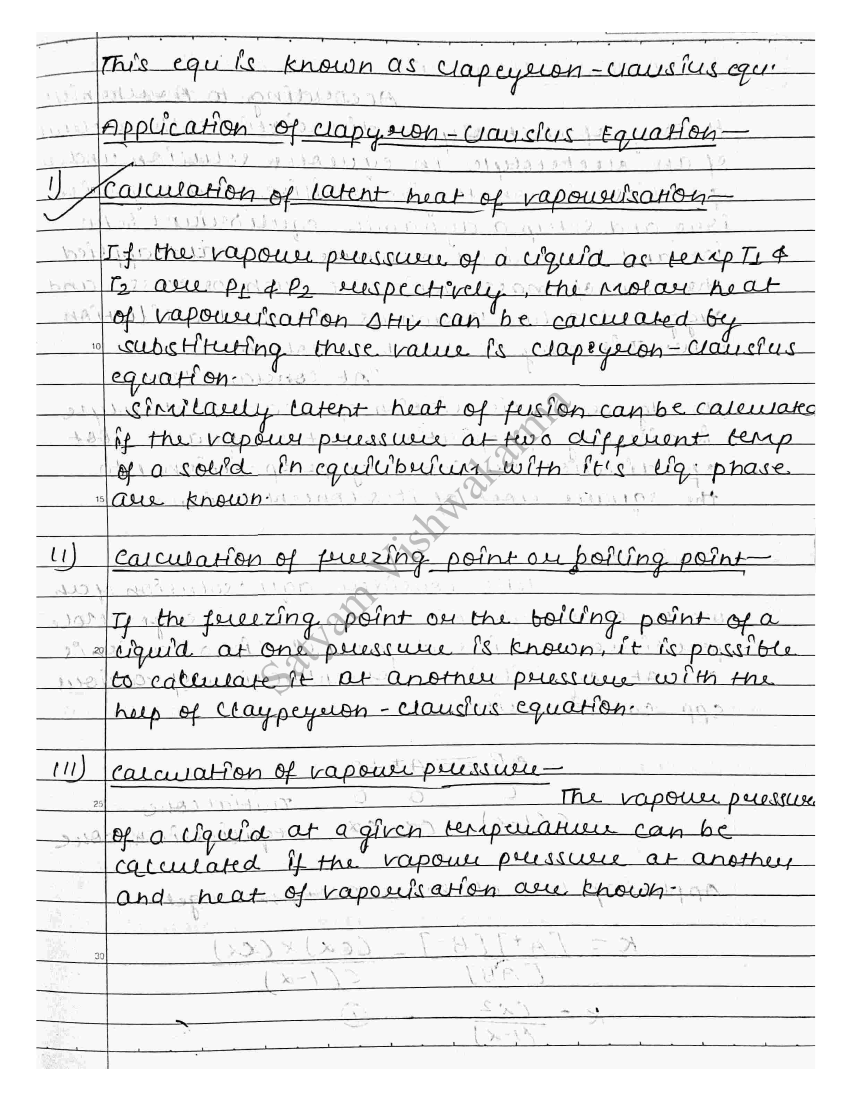 This equ is known as clapeyron-clausius equ.
Application of clapyron-clausius Equation—
I) Calculation of latent heat of vapourisation—
If the vapour pressure of a liquid as temp T1 &
T2 are P1 & P2 respectively, the molar heat
of vapourisation ΔHv can be calculated by
10 substituting these value is clapeyron-clausius
equation.
similarly latent heat of fusion can be calculated
if the vapour pressure at two different temp
of a solid in equilibrium with it's liq. phase
15 are known.
II) calculation of freezing point or boiling point—
If the freezing point or the boiling point of a
20 liquid at one pressure is known, it is possible
to calculate it at another pressure with the
help of Claypeyron-clausius equation.
III) calculation of vapour pressure—
25 The vapour pressure
of a liquid at a given temperature can be
calculated if the vapour pressure at another
and heat of vaporisation are known.
30
Satyam Vishwakarma